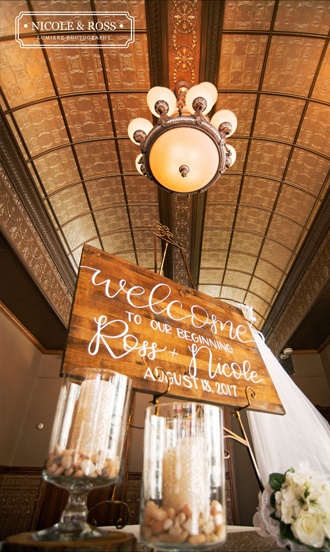 NICOLE & ROSS
LUMIERE PHOTOGRAPHY
welcome
TO OUR BEGINNING
Ross + Nicole
AUGUST 18, 2017